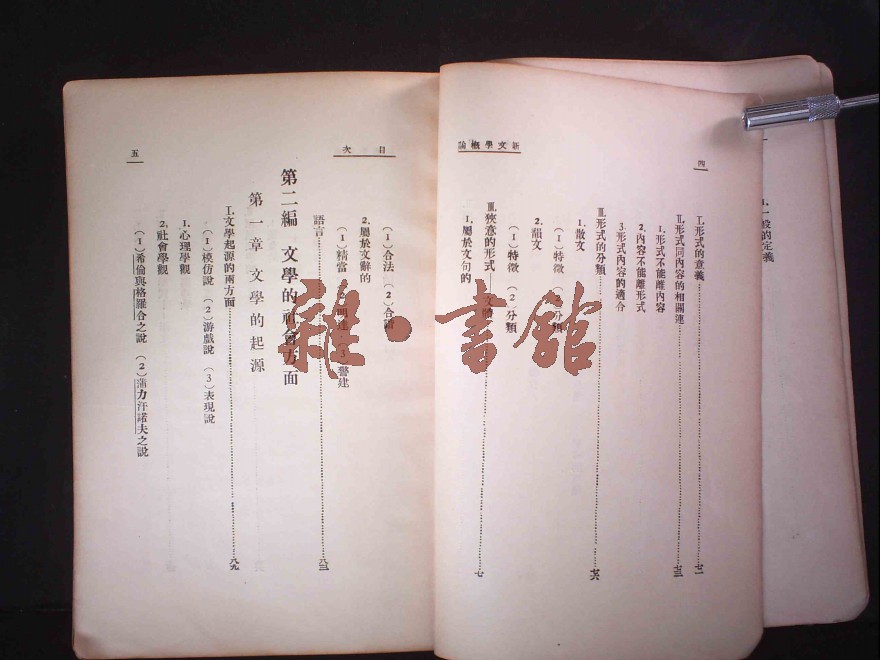 新文學概論
四
I. 形式的意義……七一
II. 形式同內容的相關連……七三
1. 形式不能離內容
2. 內容不能離形式
3. 形式內容的適合
III. 形式的分類……七六
1. 散文
(1)特徵 (2)分類
2. 韻文
(1)特徵 (2)分類
III. 狹意的形式——文體……七
1. 屬於文句的
目次
五
(1)合法 (2)合諧
2. 屬於文辭的
(1)精當
語言……八三
第二編 文學的社會方面
第一章 文學的起源
I. 文學起源的兩方面……八九
1. 心理學觀
(1)模仿說 (2)游戲說 (3)表現說
2. 社會學觀
(1)希倫與格羅合之說 (2)蒲力汗諾夫之說
一般的定義
雜·書館